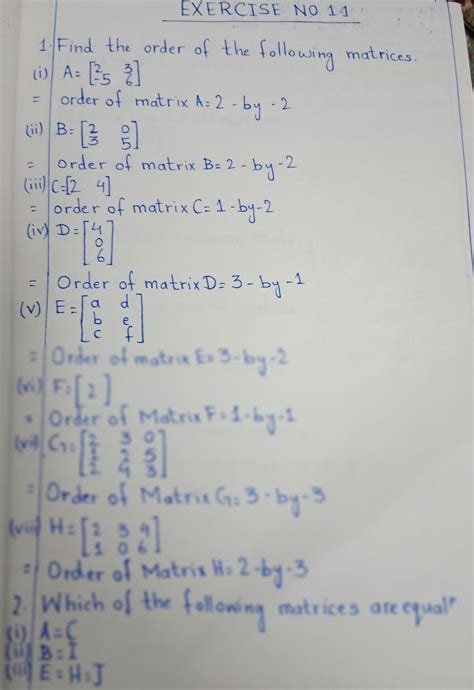 EXERCISE NO 1.1
1. Find the order of the following matrices.
(i) A= [2 3
-5 6]
= order of matrix A= 2-by-2
(ii) B= [2 0
3 5]
= Order of matrix B= 2-by-2
(iii) C=[2 4]
= order of matrix C= 1-by-2
(iv) D= [4
0
6]
= Order of matrix D= 3-by-1
(v) E= [a d
b e
c f]
= Order of matrix E= 3-by-2
(vi) F= [2]
= Order of Matrix F= 1-by-1
(vii) G= [2 3 0
1 2 5
2 4 3]
= Order of Matrix G= 3-by-3
(viii) H= [2 3 4
1 0 6]
= Order of Matrix H= 2-by-3
2. Which of the following matrices are equal?
(i) A=C
(ii) B=I
(iii) E=H=J